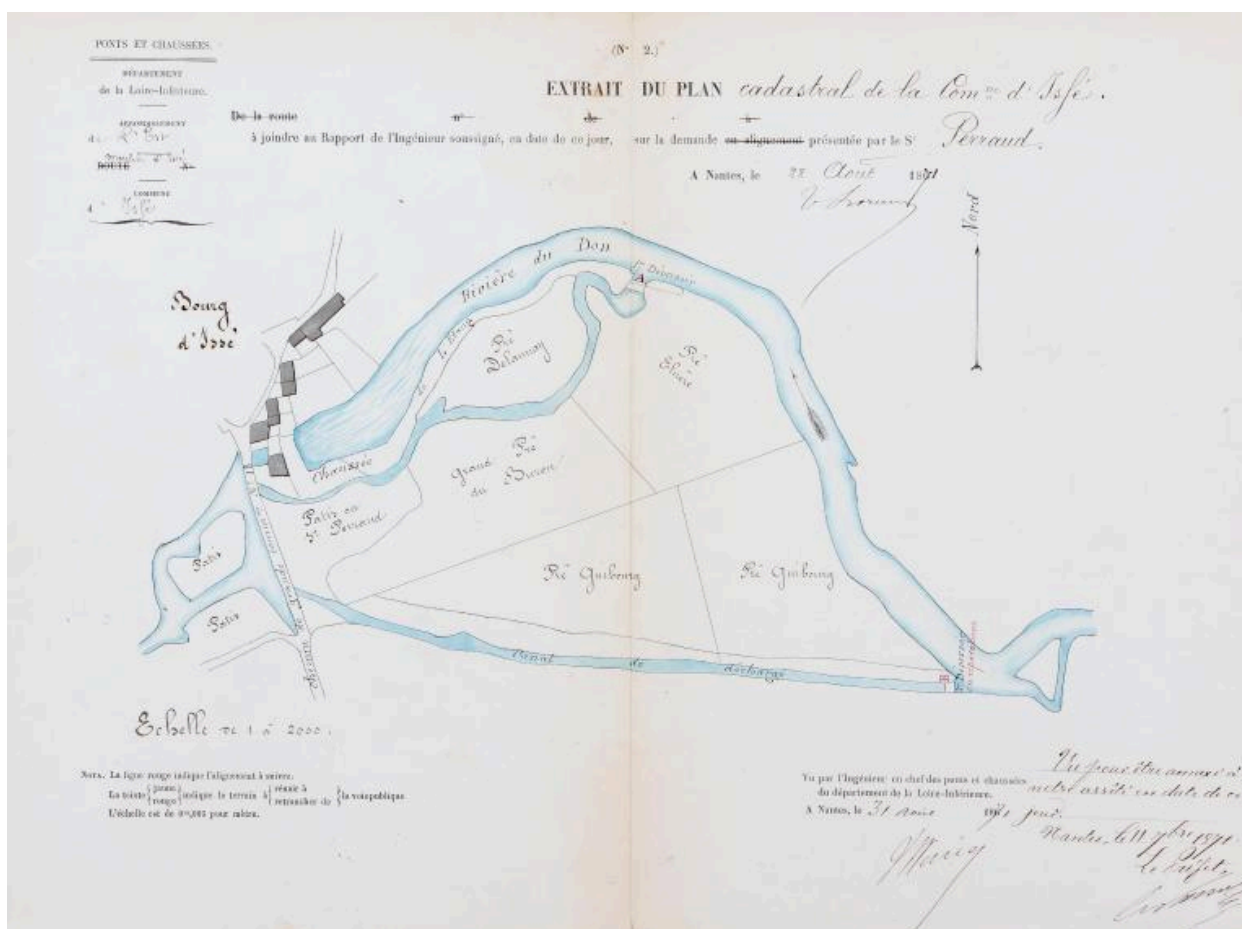 PONTS ET CHAUSSÉES.
DÉPARTEMENT
de la Loire-Inférieure.
ARRONDISSEMENT
ROUTE N°
COMMUNE
d' Issé
(N° 2.)
EXTRAIT DU PLAN cadastral de la Com.ne d'Issé.
De la route n° de à
à joindre au Rapport de l'Ingénieur soussigné, en date de ce jour, sur la demande en alignement présentée par le Sr Perraud.
A Nantes, le 22 Août 1871
Nord
Bourg
d'Issé
Rivière du Don
1er Déversoir
A
Pré
Delaunay
Pré
Chaussée de l'Etang
Grand Pré
du Buron
Patis au
Sr Perraud
Patis
Patis
Pré Guibourg
Pré Guibourg
Canal de décharge
B
Echelle de 1 à 2000.
NOTA. La ligne rouge indique l'alignement à suivre.
La teinte { jaune / rouge } indique le terrain à { réunir à / retrancher de } la voie publique
L'échelle est de 0m,005 pour mètre.
Vu par l'Ingénieur en chef des ponts et chaussées
du département de la Loire-Inférieure.
A Nantes, le 31 août 1871
Vu pour être annexé à
notre arrêté en date de ce
jour.
Nantes, le 11 7bre 1871
Le Préfet,